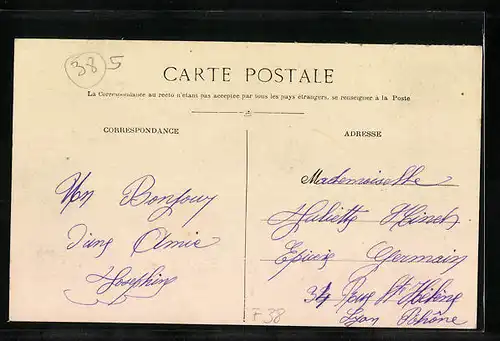 385
CARTE POSTALE
La Correspondance au recto n'étant pas acceptée par tous les pays étrangers, se renseigner à la Poste
CORRESPONDANCE
ADRESSE
Un Bonjour
d'une Amie
Joséphine
Mademoiselle
Juliette
Epicerie Germain
34 Rue St Hélène
Lyon Rhône
F38